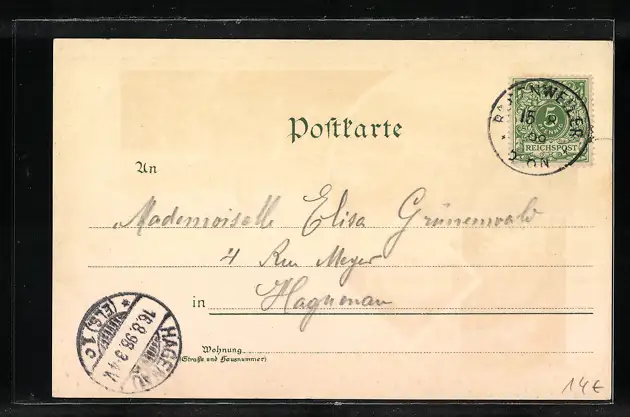 Postkarte
BADENWEILER
15 8
98
5
PFENNIG
REICHSPOST
An
Mademoiselle Elisa Grünenwald
4 Rue Meyer
in Haguenau
Wohnung
(Straße und Hausnummer)
HAGENAU
16.8.98.3-4N.
* (ELS) 1 c
14€